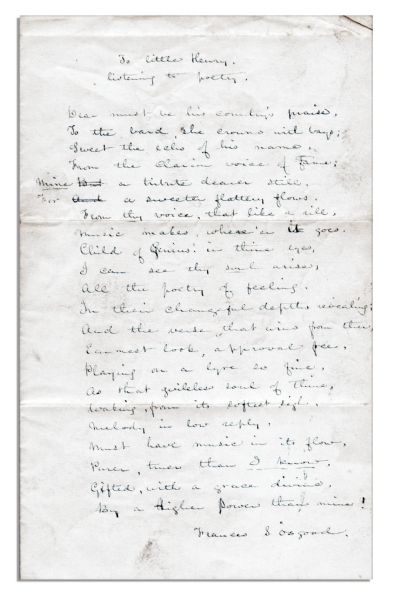 To little Henry,
listening to poetry.
Dear must be his country's praise,
To the bard, she crowns with bays;
Sweet the echo of his name,
From the clarion voice of Fame;
Mine But a tribute dearer still,
For And a sweeter flattery flows,
From thy voice, that like a rill,
Music makes, where'er it goes.
Child of Genius! in thine eyes,
I can see thy soul arises,
All the poetry of feeling,
In their changeful depths revealing;
And the verse, that wins from thee,
Earnest look, approval free,
Playing on a lyre so fine,
As that guileless soul of thine,
Waking, from its softest sigh,
Melody in low reply,
Must have music in its flow,
Purer, truer than I know,
Gifted, with a grace divine,
By a Higher Power than mine!
Frances S Osgood.